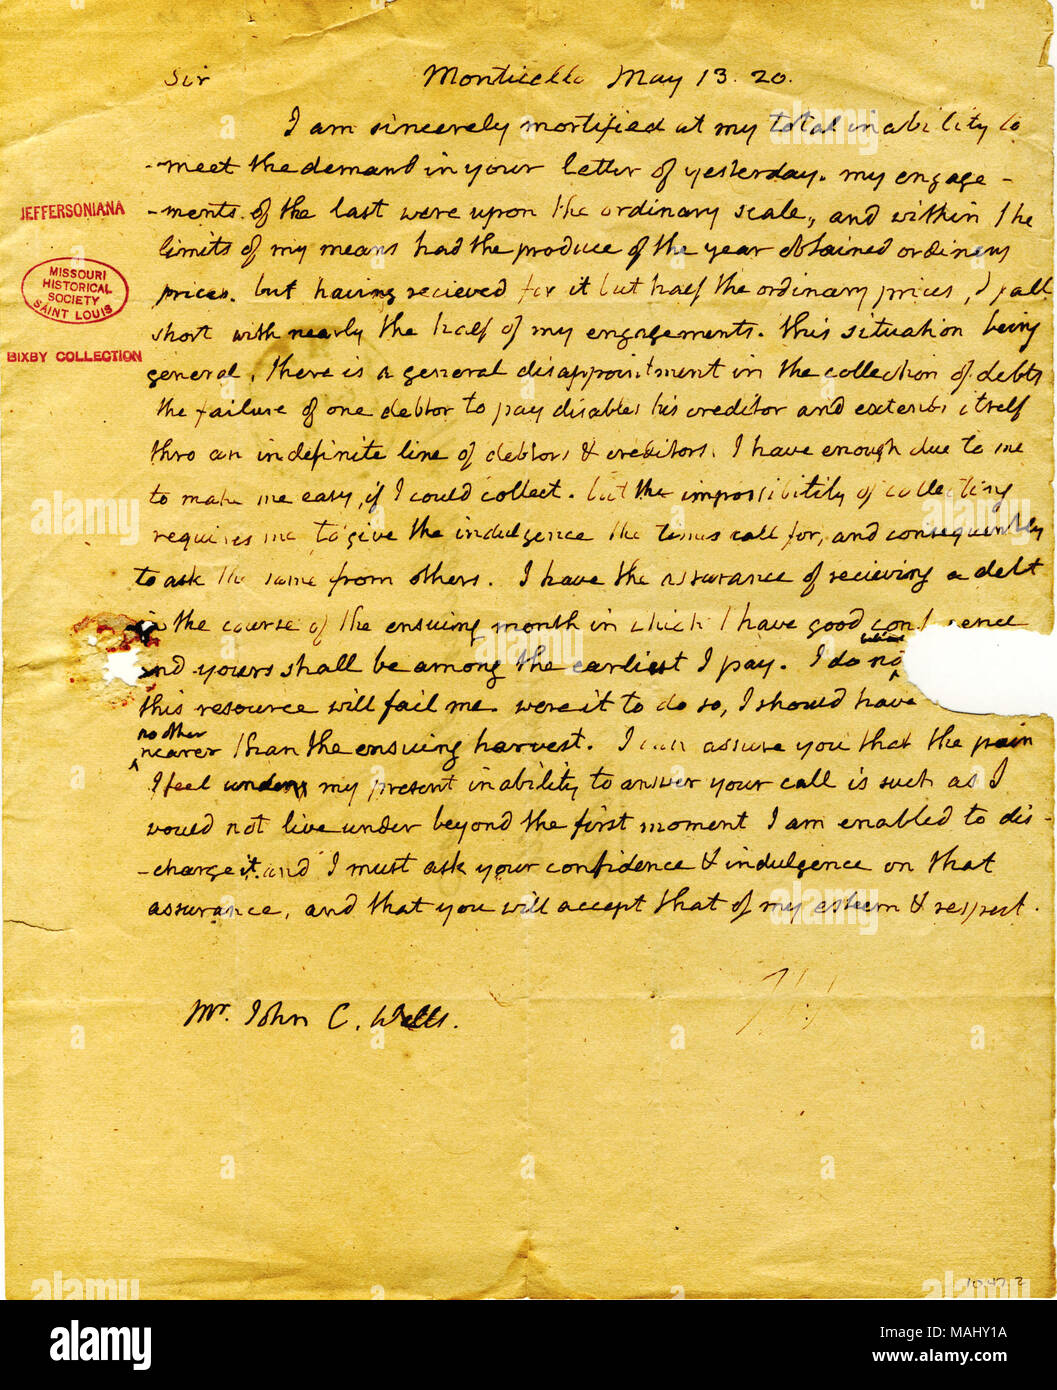 Sir Monticello May 13. 20.
I am sincerely mortified at my total inability to
-meet the demand in your letter of yesterday. my engage-
-ments of the last were upon the ordinary scale, and within the
limits of my means had the produce of the year obtained ordinary
prices. but having recieved for it but half the ordinary prices, I fall
short with nearly the half of my engagements. this situation being
general, there is a general disappointment in the collection of debts
the failure of one debtor to pay disables his creditor and extends itself
thro an indefinite line of debtors & creditors. I have enough due to me
to make me easy, if I could collect. but the impossibility of collecting
requires me to give the indulgence the times call for, and consequently
to ask the same from others. I have the assurance of recieving a debt
in the course of the ensuing month in which I have good conf dence
and yours shall be among the earliest I pay. I do no
this resource will fail me. were it to do so, I should have
no other
nearer than the ensuing harvest. I can assure you that the pain
I feel under my present inability to answer your call is such as I
would not live under beyond the first moment I am enabled to dis-
-charge it. and I must ask your confidence & indulgence on that
assurance, and that you will accept that of my esteem & respect.
Th J
Mr. John C. Wells.
JEFFERSONIANA
MISSOURI
HISTORICAL
SOCIETY
SAINT LOUIS
BIXBY COLLECTION
alamy
Image ID: MAHY1A
www.alamy.com